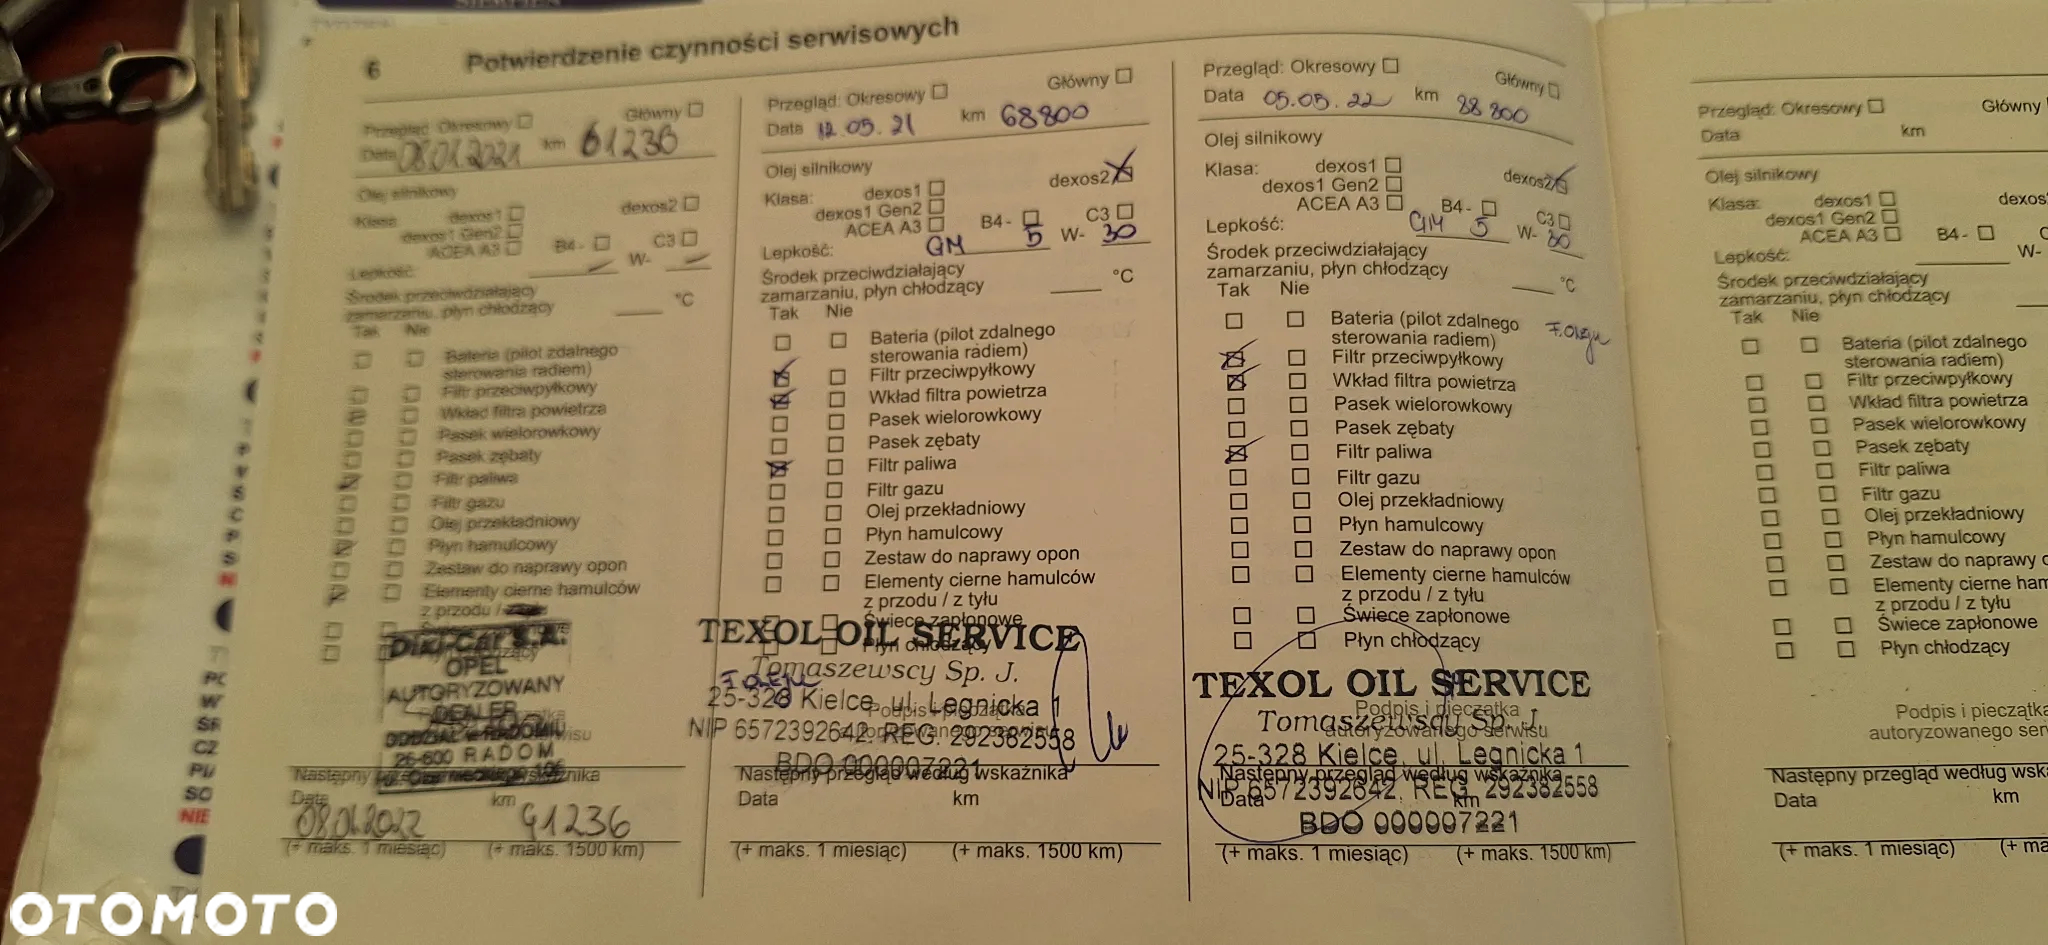 6 Potwierdzenie czynności serwisowych
Przegląd: Okresowy Główny
Data 08.01.2021 km 61236
Olej silnikowy
Klasa: dexos1 dexos2
dexos1 Gen2
ACEA A3 B4- C3
Lepkość: W-
Środek przeciwdziałający
zamarzaniu, płyn chłodzący °C
Tak Nie
Bateria (pilot zdalnego
sterowania radiem)
Filtr przeciwpyłkowy
Wkład filtra powietrza
Pasek wielorowkowy
Pasek zębaty
Filtr paliwa
Filtr gazu
Olej przekładniowy
Płyn hamulcowy
Zestaw do naprawy opon
Elementy cierne hamulców
z przodu /
OPEL
AUTORYZOWANY
DEALER
ODDZIAŁ w RADOMIU
26-600 RADOM
Następny wskaźnika
Data km
08.01.2022 91236
(+ maks. 1 miesiąc) (+ maks. 1500 km)
Przegląd: Okresowy Główny
Data 12.05.21 km 68800
Olej silnikowy
Klasa: dexos1 dexos2
dexos1 Gen2
ACEA A3 B4- C3
Lepkość: GM 5 W- 30
Środek przeciwdziałający
zamarzaniu, płyn chłodzący °C
Tak Nie
Bateria (pilot zdalnego
sterowania radiem)
Filtr przeciwpyłkowy
Wkład filtra powietrza
Pasek wielorowkowy
Pasek zębaty
Filtr paliwa
Filtr gazu
Olej przekładniowy
Płyn hamulcowy
Zestaw do naprawy opon
Elementy cierne hamulców
z przodu / z tyłu
Świece zapłonowe
Płyn chłodzący
TEXOL OIL SERVICE
Tomaszewscy Sp. J.
F. oleju
25-328 Kielce, ul. Legnicka 1
Podpis i pieczątka
NIP 6572392642. REG. 292382558
autoryzowanego serwisu
BDO 000007221
Następny przegląd według wskaźnika
Data km
(+ maks. 1 miesiąc) (+ maks. 1500 km)
Przegląd: Okresowy Główny
Data 05.05.22 km 88800
Olej silnikowy
Klasa: dexos1 dexos2
dexos1 Gen2
ACEA A3 B4- C3
Lepkość: GM 5 W- 30
Środek przeciwdziałający
zamarzaniu, płyn chłodzący °C
Tak Nie
Bateria (pilot zdalnego F. oleju
sterowania radiem)
Filtr przeciwpyłkowy
Wkład filtra powietrza
Pasek wielorowkowy
Pasek zębaty
Filtr paliwa
Filtr gazu
Olej przekładniowy
Płyn hamulcowy
Zestaw do naprawy opon
Elementy cierne hamulców
z przodu / z tyłu
Świece zapłonowe
Płyn chłodzący
TEXOL OIL SERVICE
Podpis i pieczątka
Tomaszewscy Sp. J.
autoryzowanego serwisu
25-328 Kielce, ul. Legnicka 1
Następny przegląd według wskaźnika
NIP 6572392642. REG. 292382558
Data km
BDO 000007221
(+ maks. 1 miesiąc) (+ maks. 1500 km)
Przegląd: Okresowy Główny
Data km
Olej silnikowy
Klasa: dexos1 dexos
dexos1 Gen2
ACEA A3 B4-
Lepkość: W-
Środek przeciwdziałający
zamarzaniu, płyn chłodzący
Tak Nie
Bateria (pilot zdalnego
sterowania radiem)
Filtr przeciwpyłkowy
Wkład filtra powietrza
Pasek wielorowkowy
Pasek zębaty
Filtr paliwa
Filtr gazu
Olej przekładniowy
Płyn hamulcowy
Zestaw do naprawy o
Elementy cierne ham
z przodu / z tyłu
Świece zapłonowe
Płyn chłodzący
Podpis i pieczątka
autoryzowanego ser
Następny przegląd według wska
Data km
(+ maks. 1 miesiąc) (+ ma
OTOMOTO